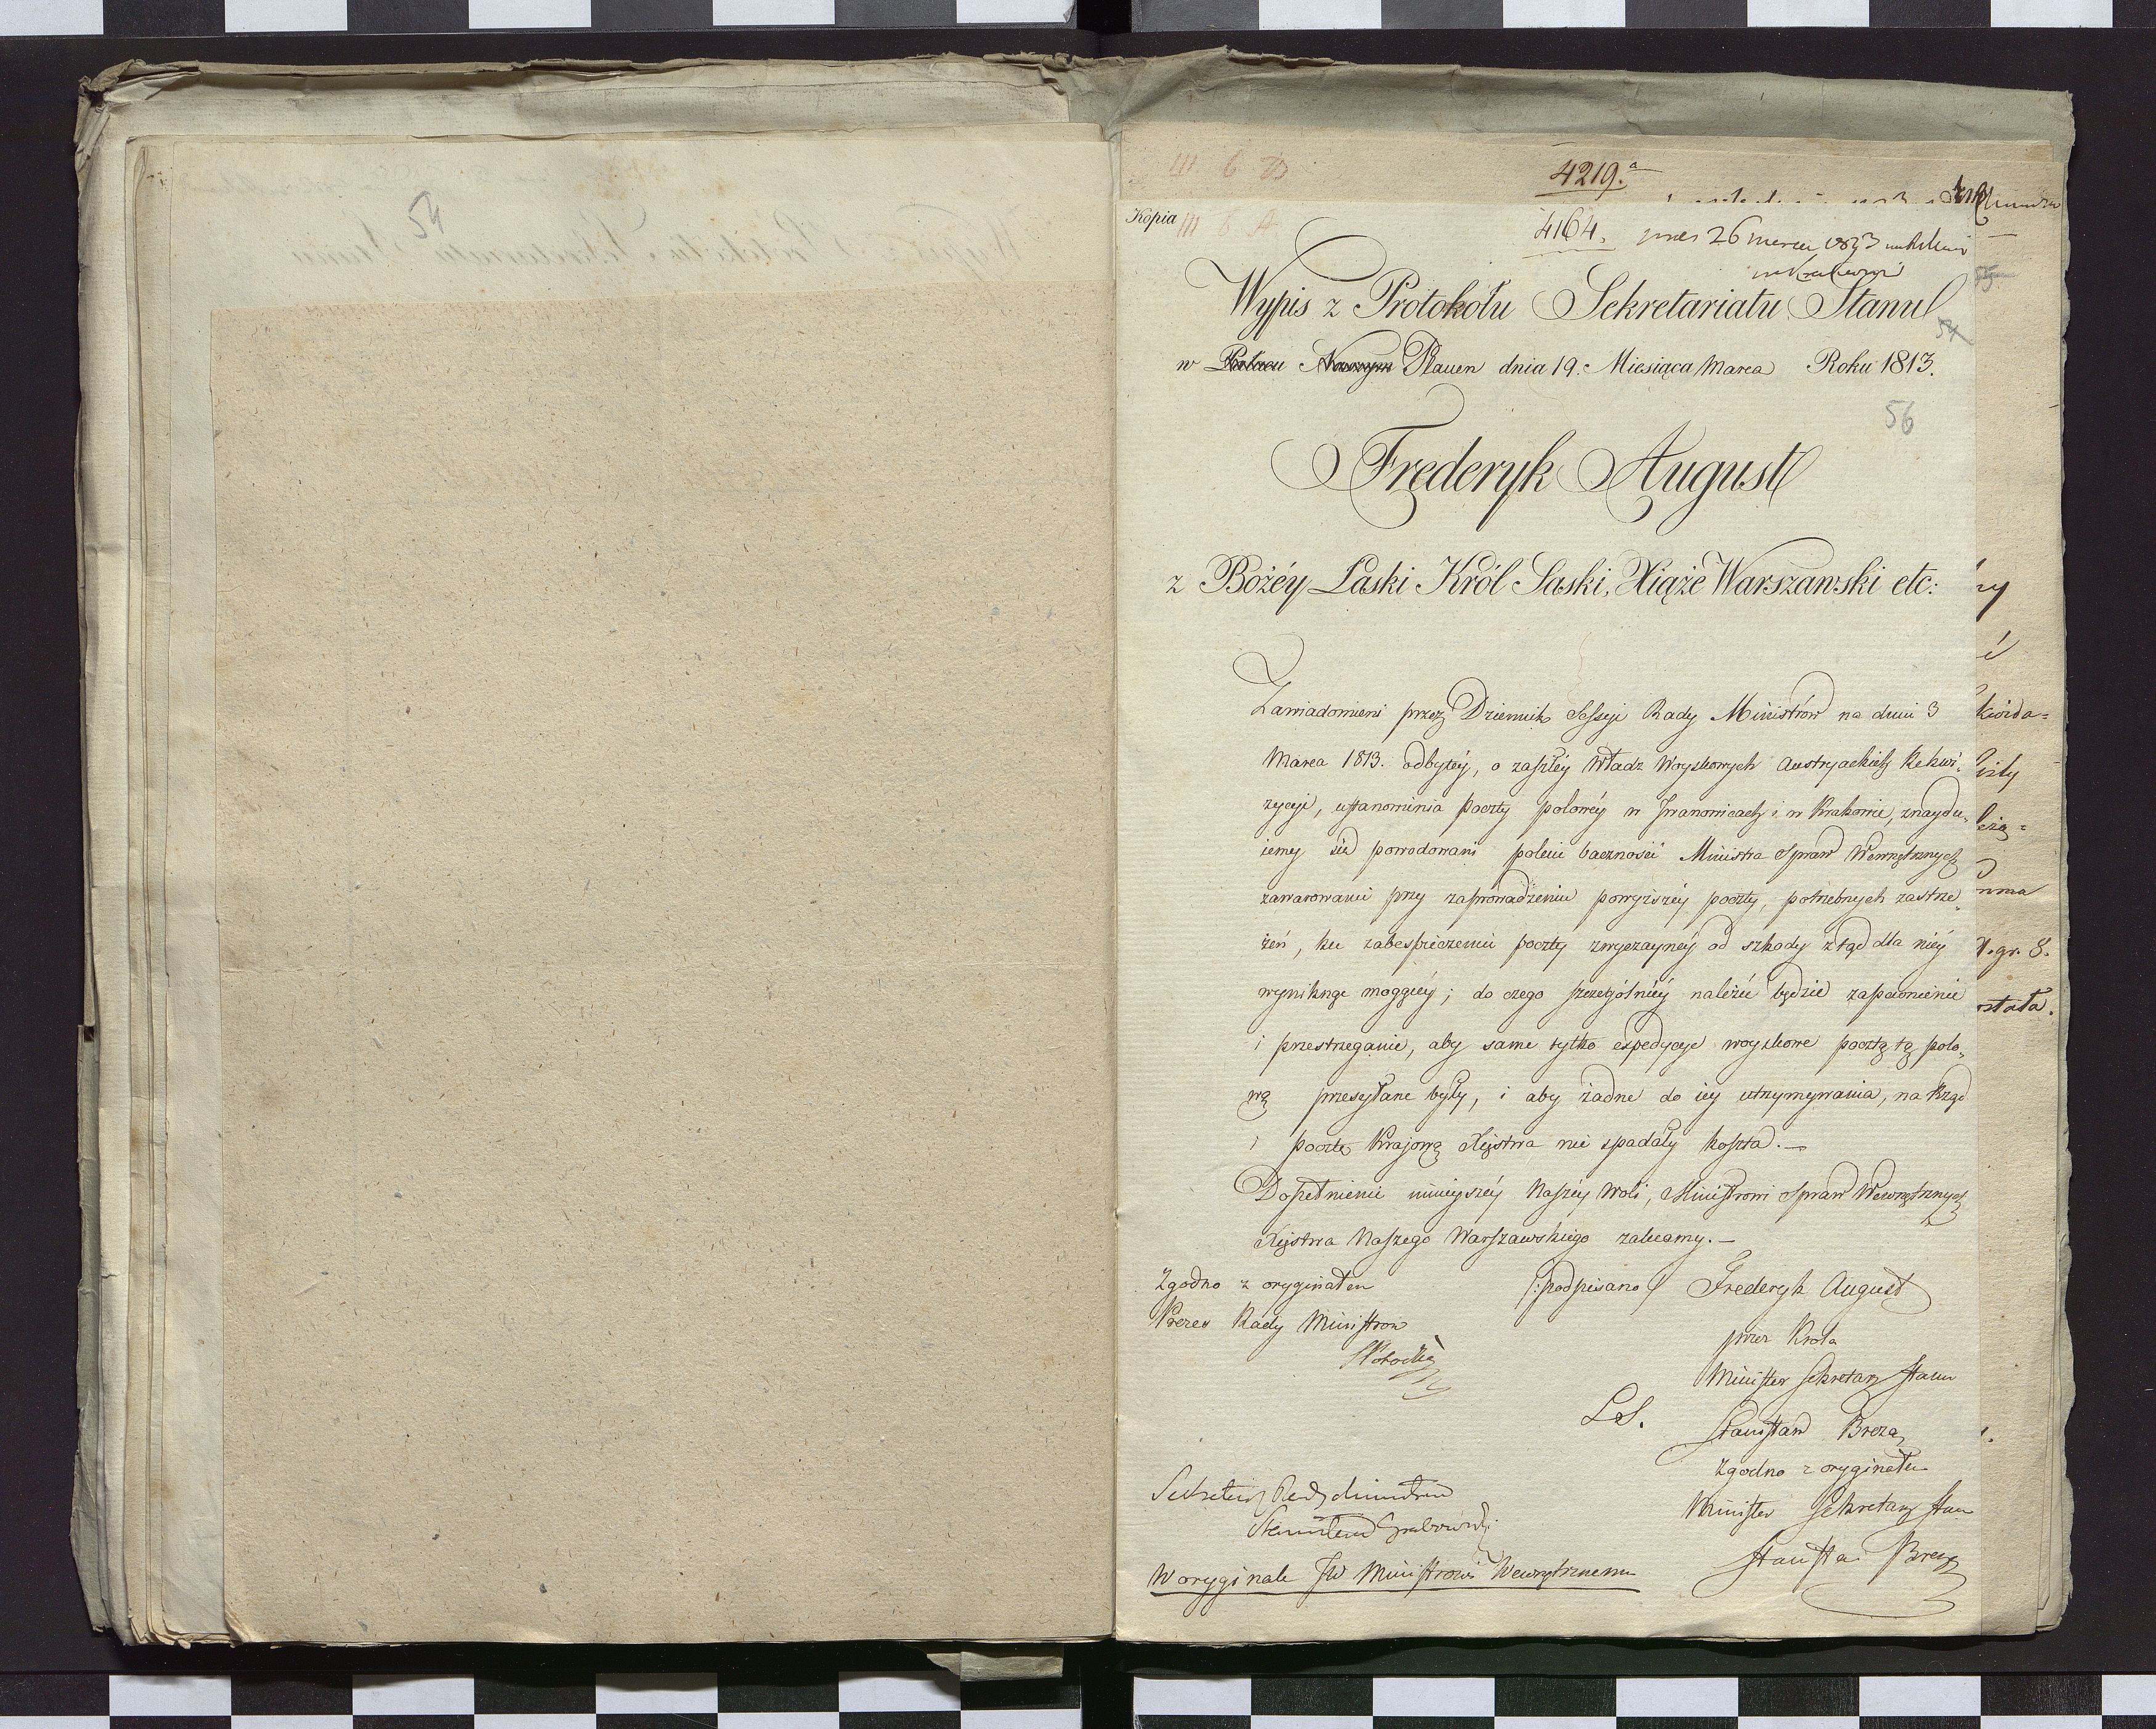 54
III 6 B
4219.a
Kopia III 6 A
4164. pres 26 marca 1813 w Krakowie
55
Wypis z Protokołu Sekretariatu Stanu
54
w Pałacu Naszym Plauen dnia 19. Miesiąca Marca Roku 1813.
56
Frederyk August
z Bożéy Łaski Król Saski, Xiąże Warszawski etc:
Zawiadomieni przez Dziennik Sessyi Rady Ministrów na dniu 3
Marca 1813. odbytéy, o zaszłéy Władz Woyskowych Austryackich Rekwi-
zycyi, ustanowienia poczty polowéy w Iwanowicach i w Krakowie, znaydu-
iemy się powodowani polecić baczności Ministra Spraw Wewnętrznych
zawarowanie przy zaprowadzeniu powyższéy poczty, potrzebnych zastrze-
żeń, ku zabespieczeniu poczty zwyczaynéy od szkody ztąd dla niéy
wyniknąć mogącéy; do czego szczególniéy należeć będzie zapewnienie
i przestrzeganie, aby same tylko expedycye woyskowe pocztą tą polo-
wą przesyłane były, i aby żadne do iéy utrzymywania, na Rząd
i pocztę Krajową Xięstwa nie spadały koszta. —
Dopełnienie ninieyszéy Naszéy Woli, Ministrowi Spraw Wewnętrznych
Xięstwa Naszego Warszawskiego zalecamy. —
Zgodno z oryginałem (:podpisano) Frederyk August
Prezes Rady Ministrów przez Króla
S Potocki Minister Sekretarz Stanu
L.S. Stanisław Breza
Zgodno z oryginałem
Sekretarz Rady Ministrów Minister Sekretarz Stanu
Stanisław Grabowski Stanisław Breza
W oryginale JW Ministrowi Wewnętrznemu
ny
N. gr. 8.
ostała.